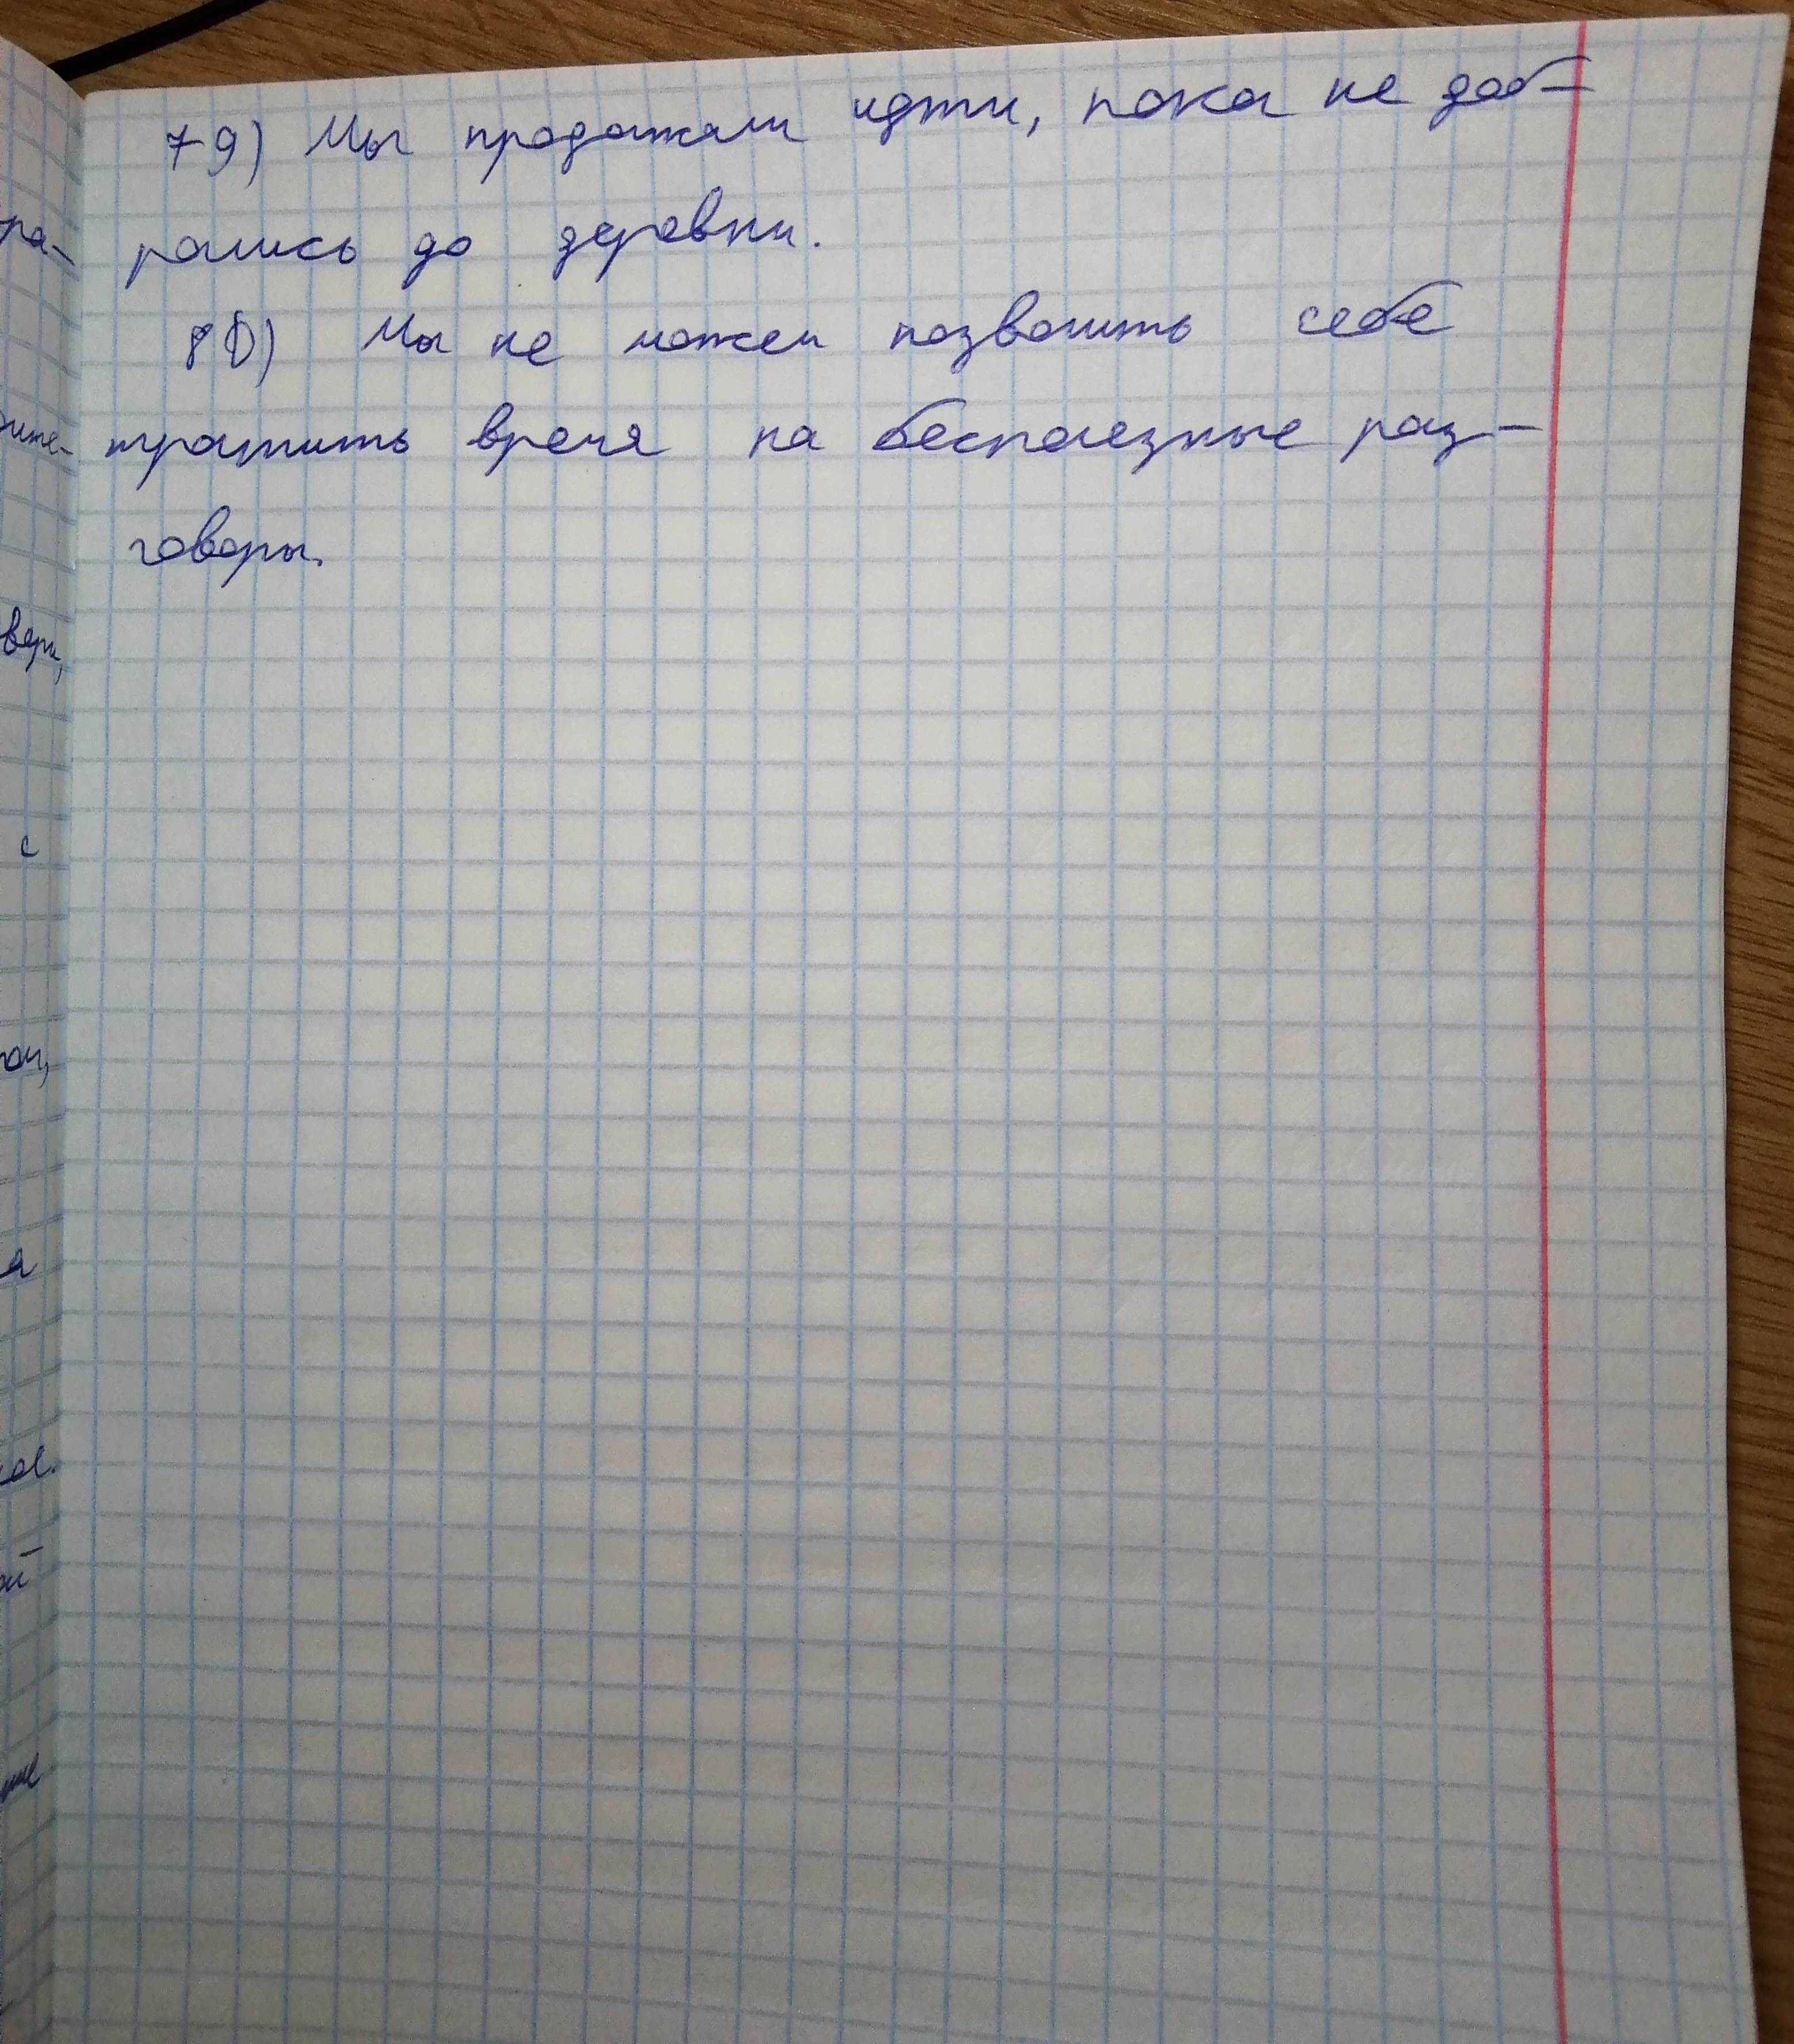 79) Мы продолжали идти, пока не доб-
рались до деревни.
80) Мы не можем позволить себе
тратить время на бесполезные раз-
говоры.